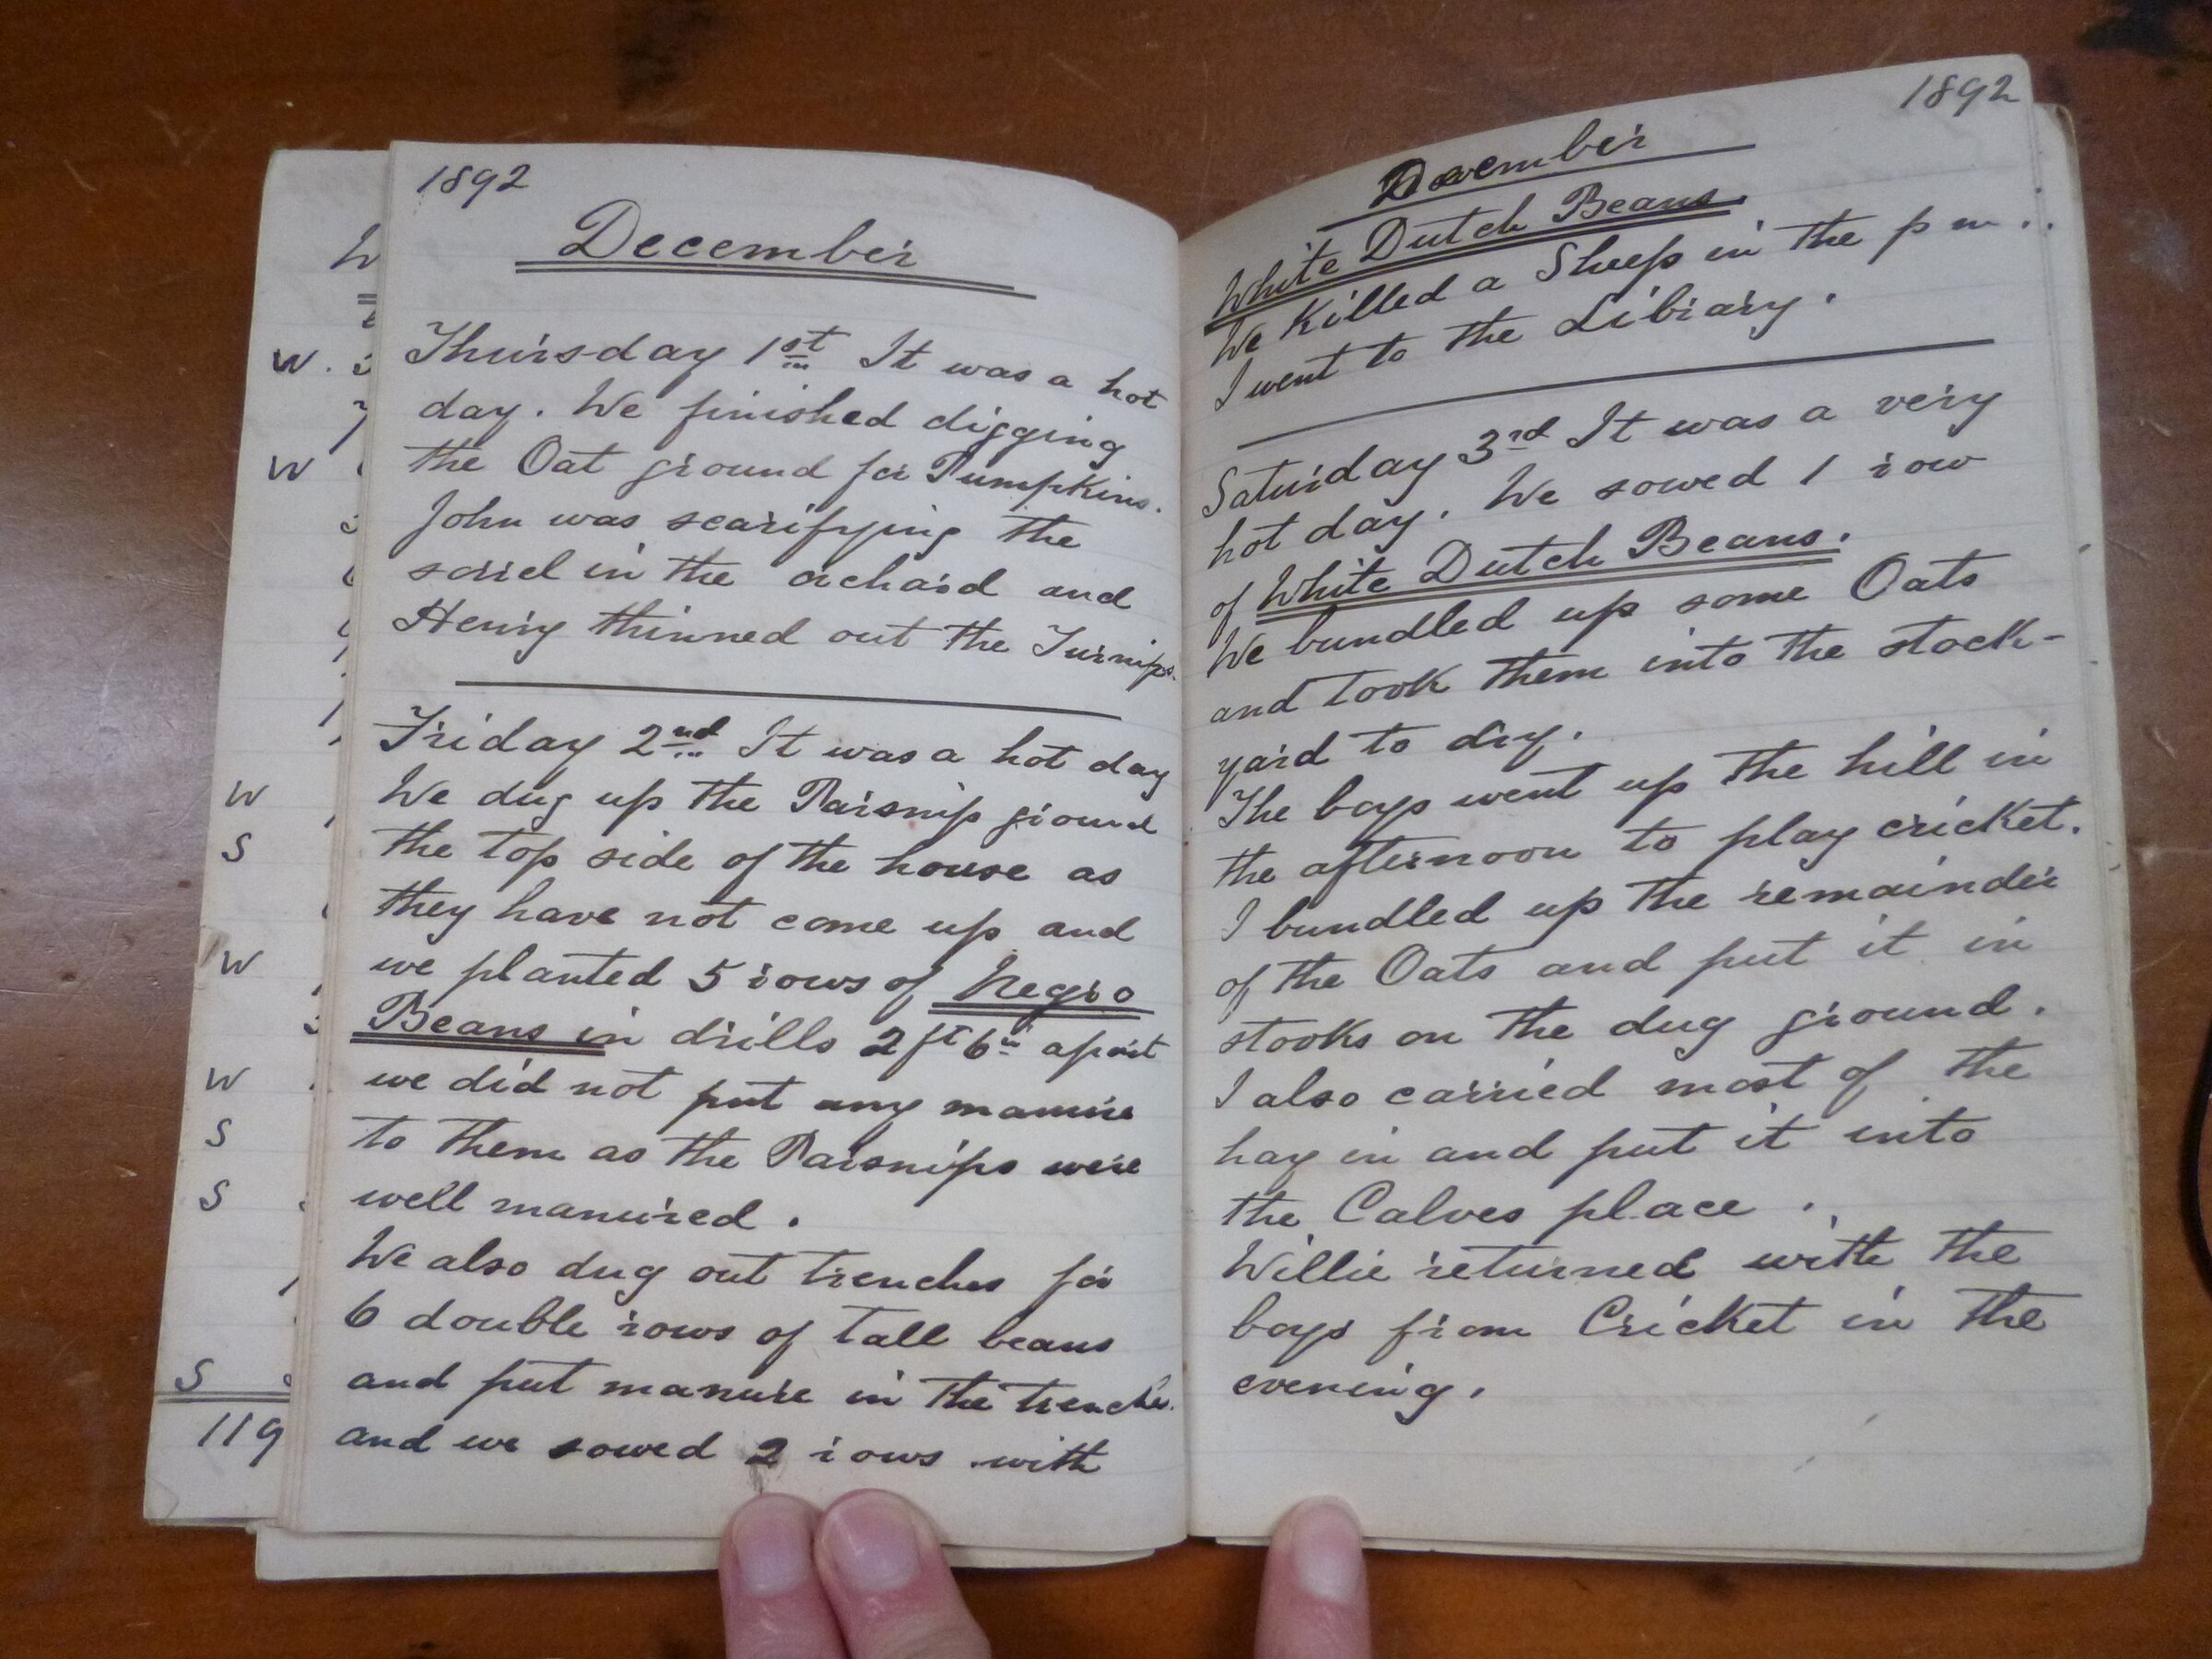 1892
December
Thursday 1st It was a hot
day. We finished digging
the Oat ground for Pumpkins.
John was scarifying the
sorrel in the orchard and
Henry thinned out the Turnips.
Friday 2nd It was a hot day
We dug up the Parsnip ground
the top side of the house as
they have not come up and
we planted 5 rows of Negro
Beans in drills 2 ft 6 in apart
we did not put any manure
to them as the Parsnips were
well manured.
We also dug out trenches for
6 double rows of tall beans
and put manure in the trenches.
and we sowed 2 rows with
1892
December
White Dutch Beans.
We killed a Sheep in the p m..
I went to the Library.
Saturday 3rd It was a very
hot day. We sowed 1 row
of White Dutch Beans.
We bundled up some Oats
and took them into the stock-
yard to dry.
The boys went up the hill in
the afternoon to play cricket.
I bundled up the remainder
of the Oats and put it in
stooks on the dug ground.
I also carried most of the
hay in and put it into
the Calves place.
Willie returned with the
boys from Cricket in the
evening.
W
W
W
S
W
W
S
S
S
119